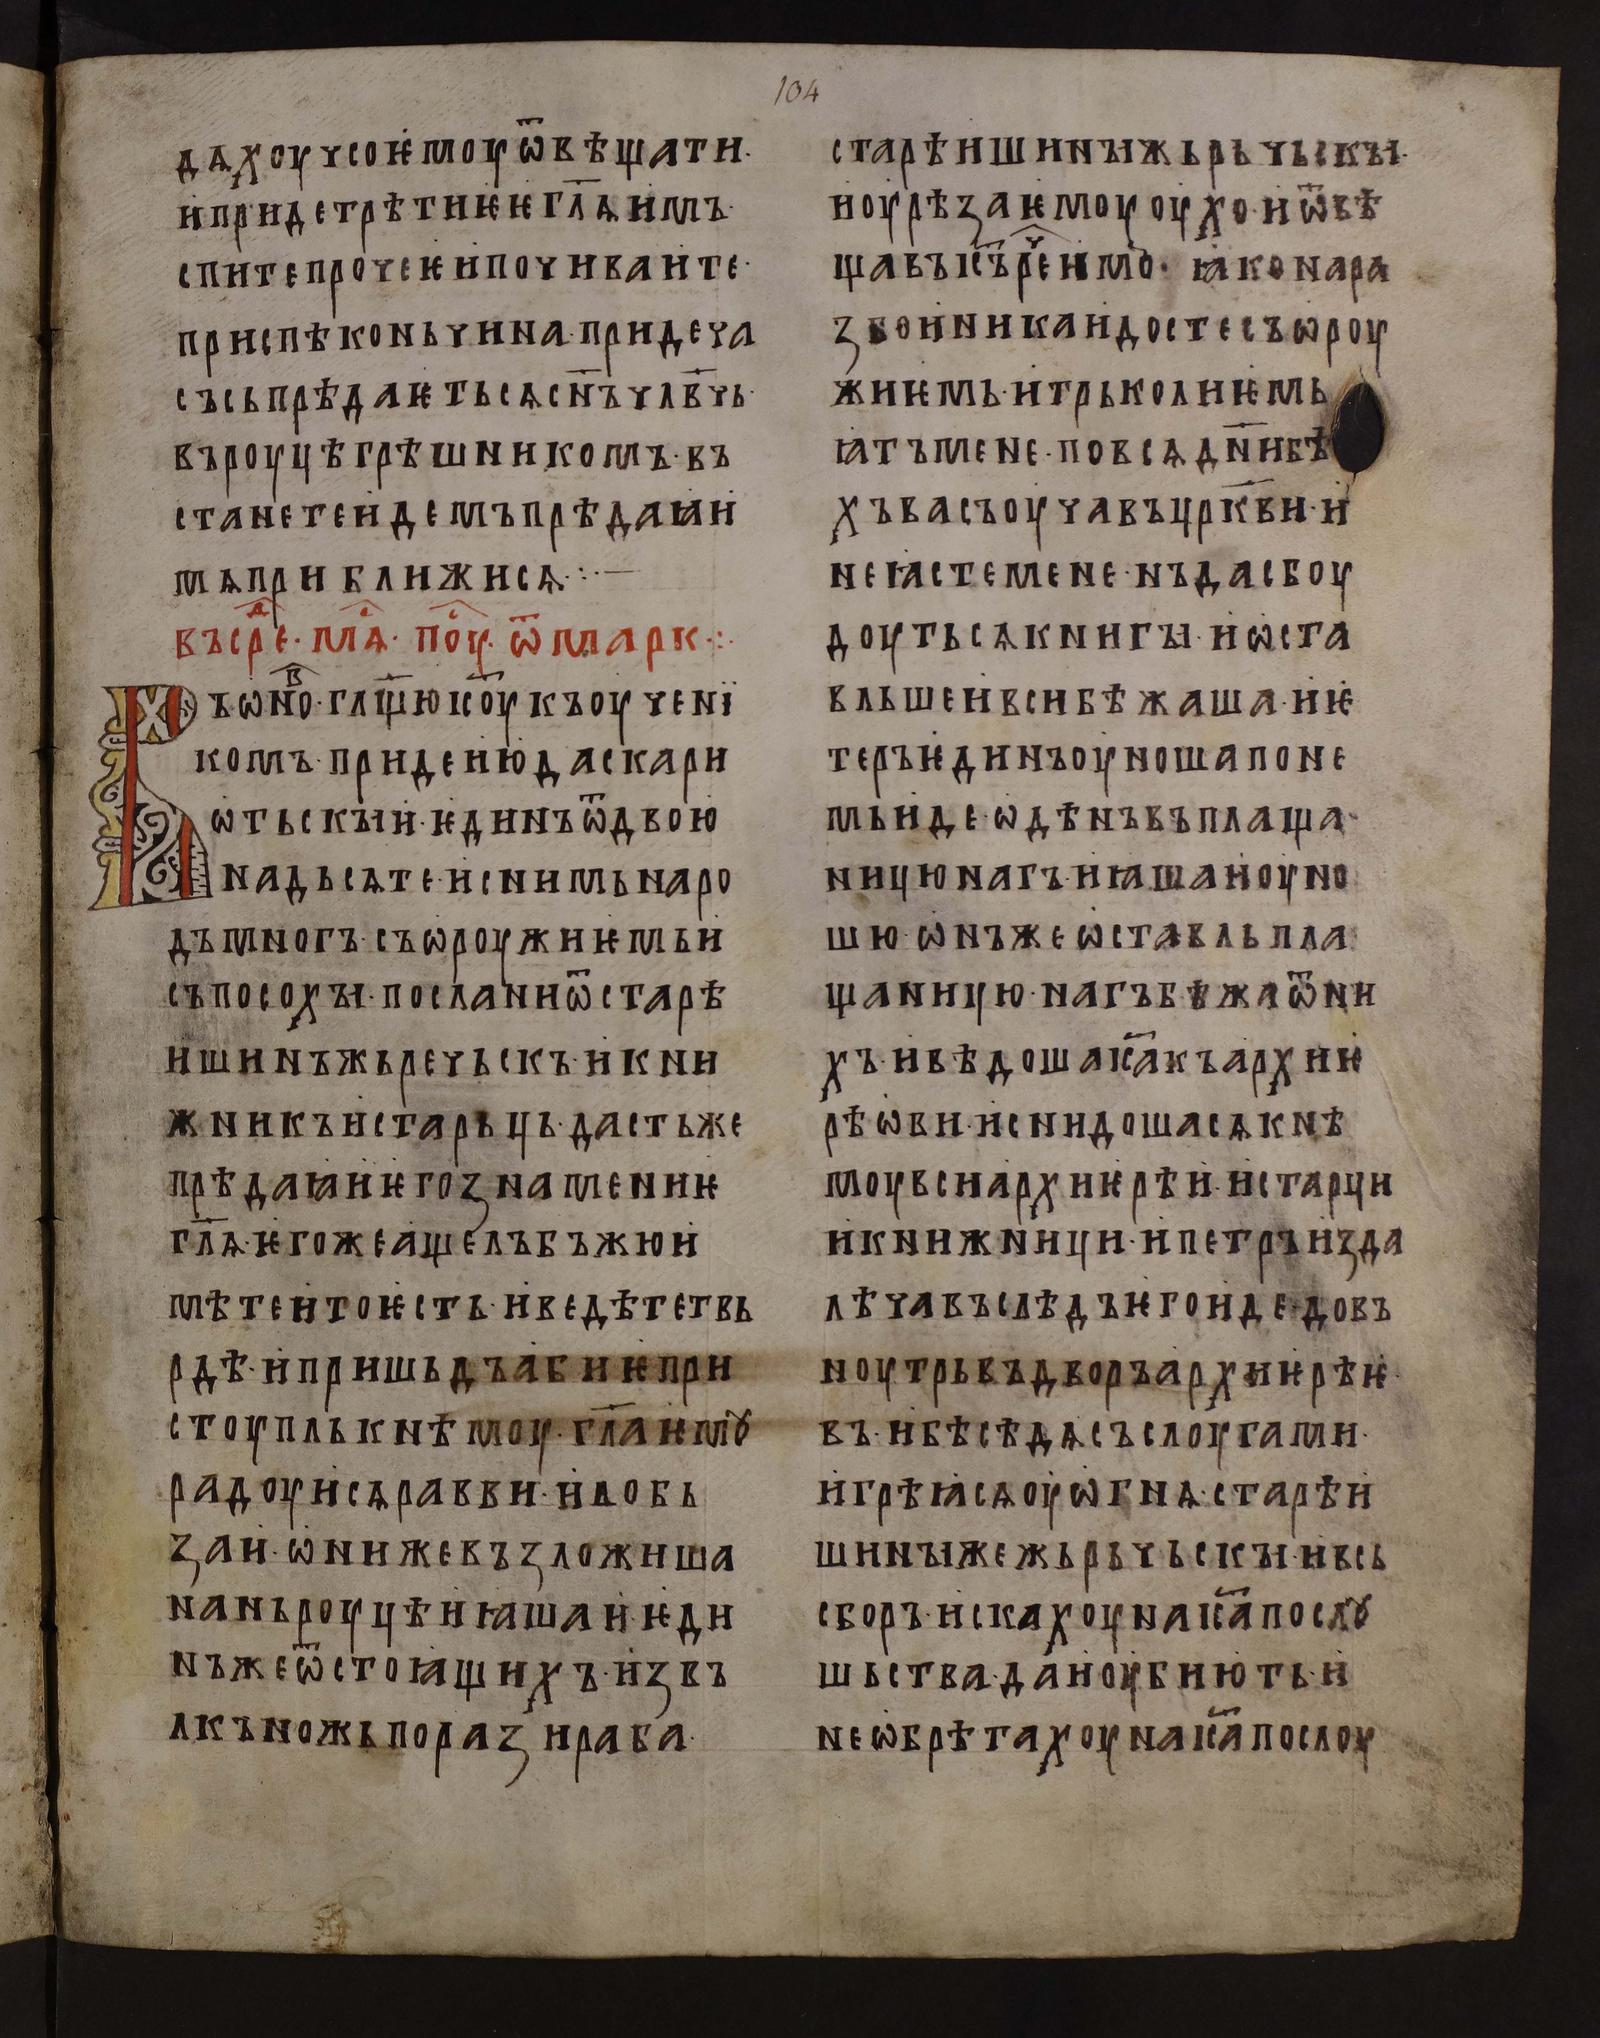 104
дахоу чсо ѥмоу ѿвѣщати·
и приде третиѥ ѥ гл҃ѧ имъ·
спите прочеѥ и почиваите·
приспѣ коньчина· приде ча
съ сь прѣдаѥть сѧ сн҃ъ чл҃вчь·
въ роуцѣ грѣшникомъ· въ
станете идемъ прѣдаꙗи
мѧ приближи сѧ·:·—
въ срⷣе· мѧⷭ· поⷭу· ѿ марк·:·
Въ ѡноⷡ· гл҃щю ісⷭоу къ оучені
комъ· приде июда скари
ѡтьскыи· ѥдинъ ѿ двою
надьсѧте· и с нимь наро
дъ многъ· съ ѡроужиѥмь и
съ посохы· послани ѿ старѣ
ишинъ жьречьскъ· и кни
жникъ и старьць· дасть же
прѣдаꙗи ѥго знамениѥ
гл҃ѧ· ѥгоже аще лъбъжю и
мѣте и то ѥсть· и ведѣте твь
рдѣ· и пришьдъ абиѥ при
стоупль к нѣмоу· гл҃а ѥмꙋ
радоуи сѧ равви· и лобь
заи· ѡни же възложиша
на нь роуцѣ и ꙗша и· ѥди
нъ же ѿ стоꙗщихъ· изв
лкъ ножь порази раба·
старѣишины жьрьчьскы·
и оурѣза ѥмоу оухо· и ѿвѣ
щавъ ісⷭъ реⷱ имъ· ꙗко на ра
збоиника идосте съ ѡроу
жиѥмь· и трьколиѥмь
ꙗтъ мене· по всѧ дн҃и бѣ
хъ васъ оуча въ цр҃кви· и
не ꙗсте мене· нъ да сбоу
доуть сѧ книгы· и ѡста
вльше и вси бѣжаша· и ѥ
теръ ѥдинъ оуноша по не
мь иде· ѡдѣнъ въ плаща
ницю нагъ· и ꙗша и оуно
шю· ѡнъ же ѡставль пла
щаницю· нагъ бѣжа ѿ ни
хъ· и вѣдоша ісⷭа къ архиѥ
рѣѡви· и снидоша сѧ к нѣ
моу вси архиѥрѣи· и старци
и книжници· и петръ изда
лѣча въ слѣдъ ѥго иде· до въ
ноутрь въ дворъ архиѥрѣѥ
въ· и бѣ сѣдѧ съ слоугами·
и грѣꙗ сѧ оу ѡгнѧ· старѣи
шины же жьрьчьскы· и вьсь
сборъ· искахоу на ісⷭа послꙋ
шьства· да и оубиють· и
не ѡбрѣтахоу на ісⷭа послоу